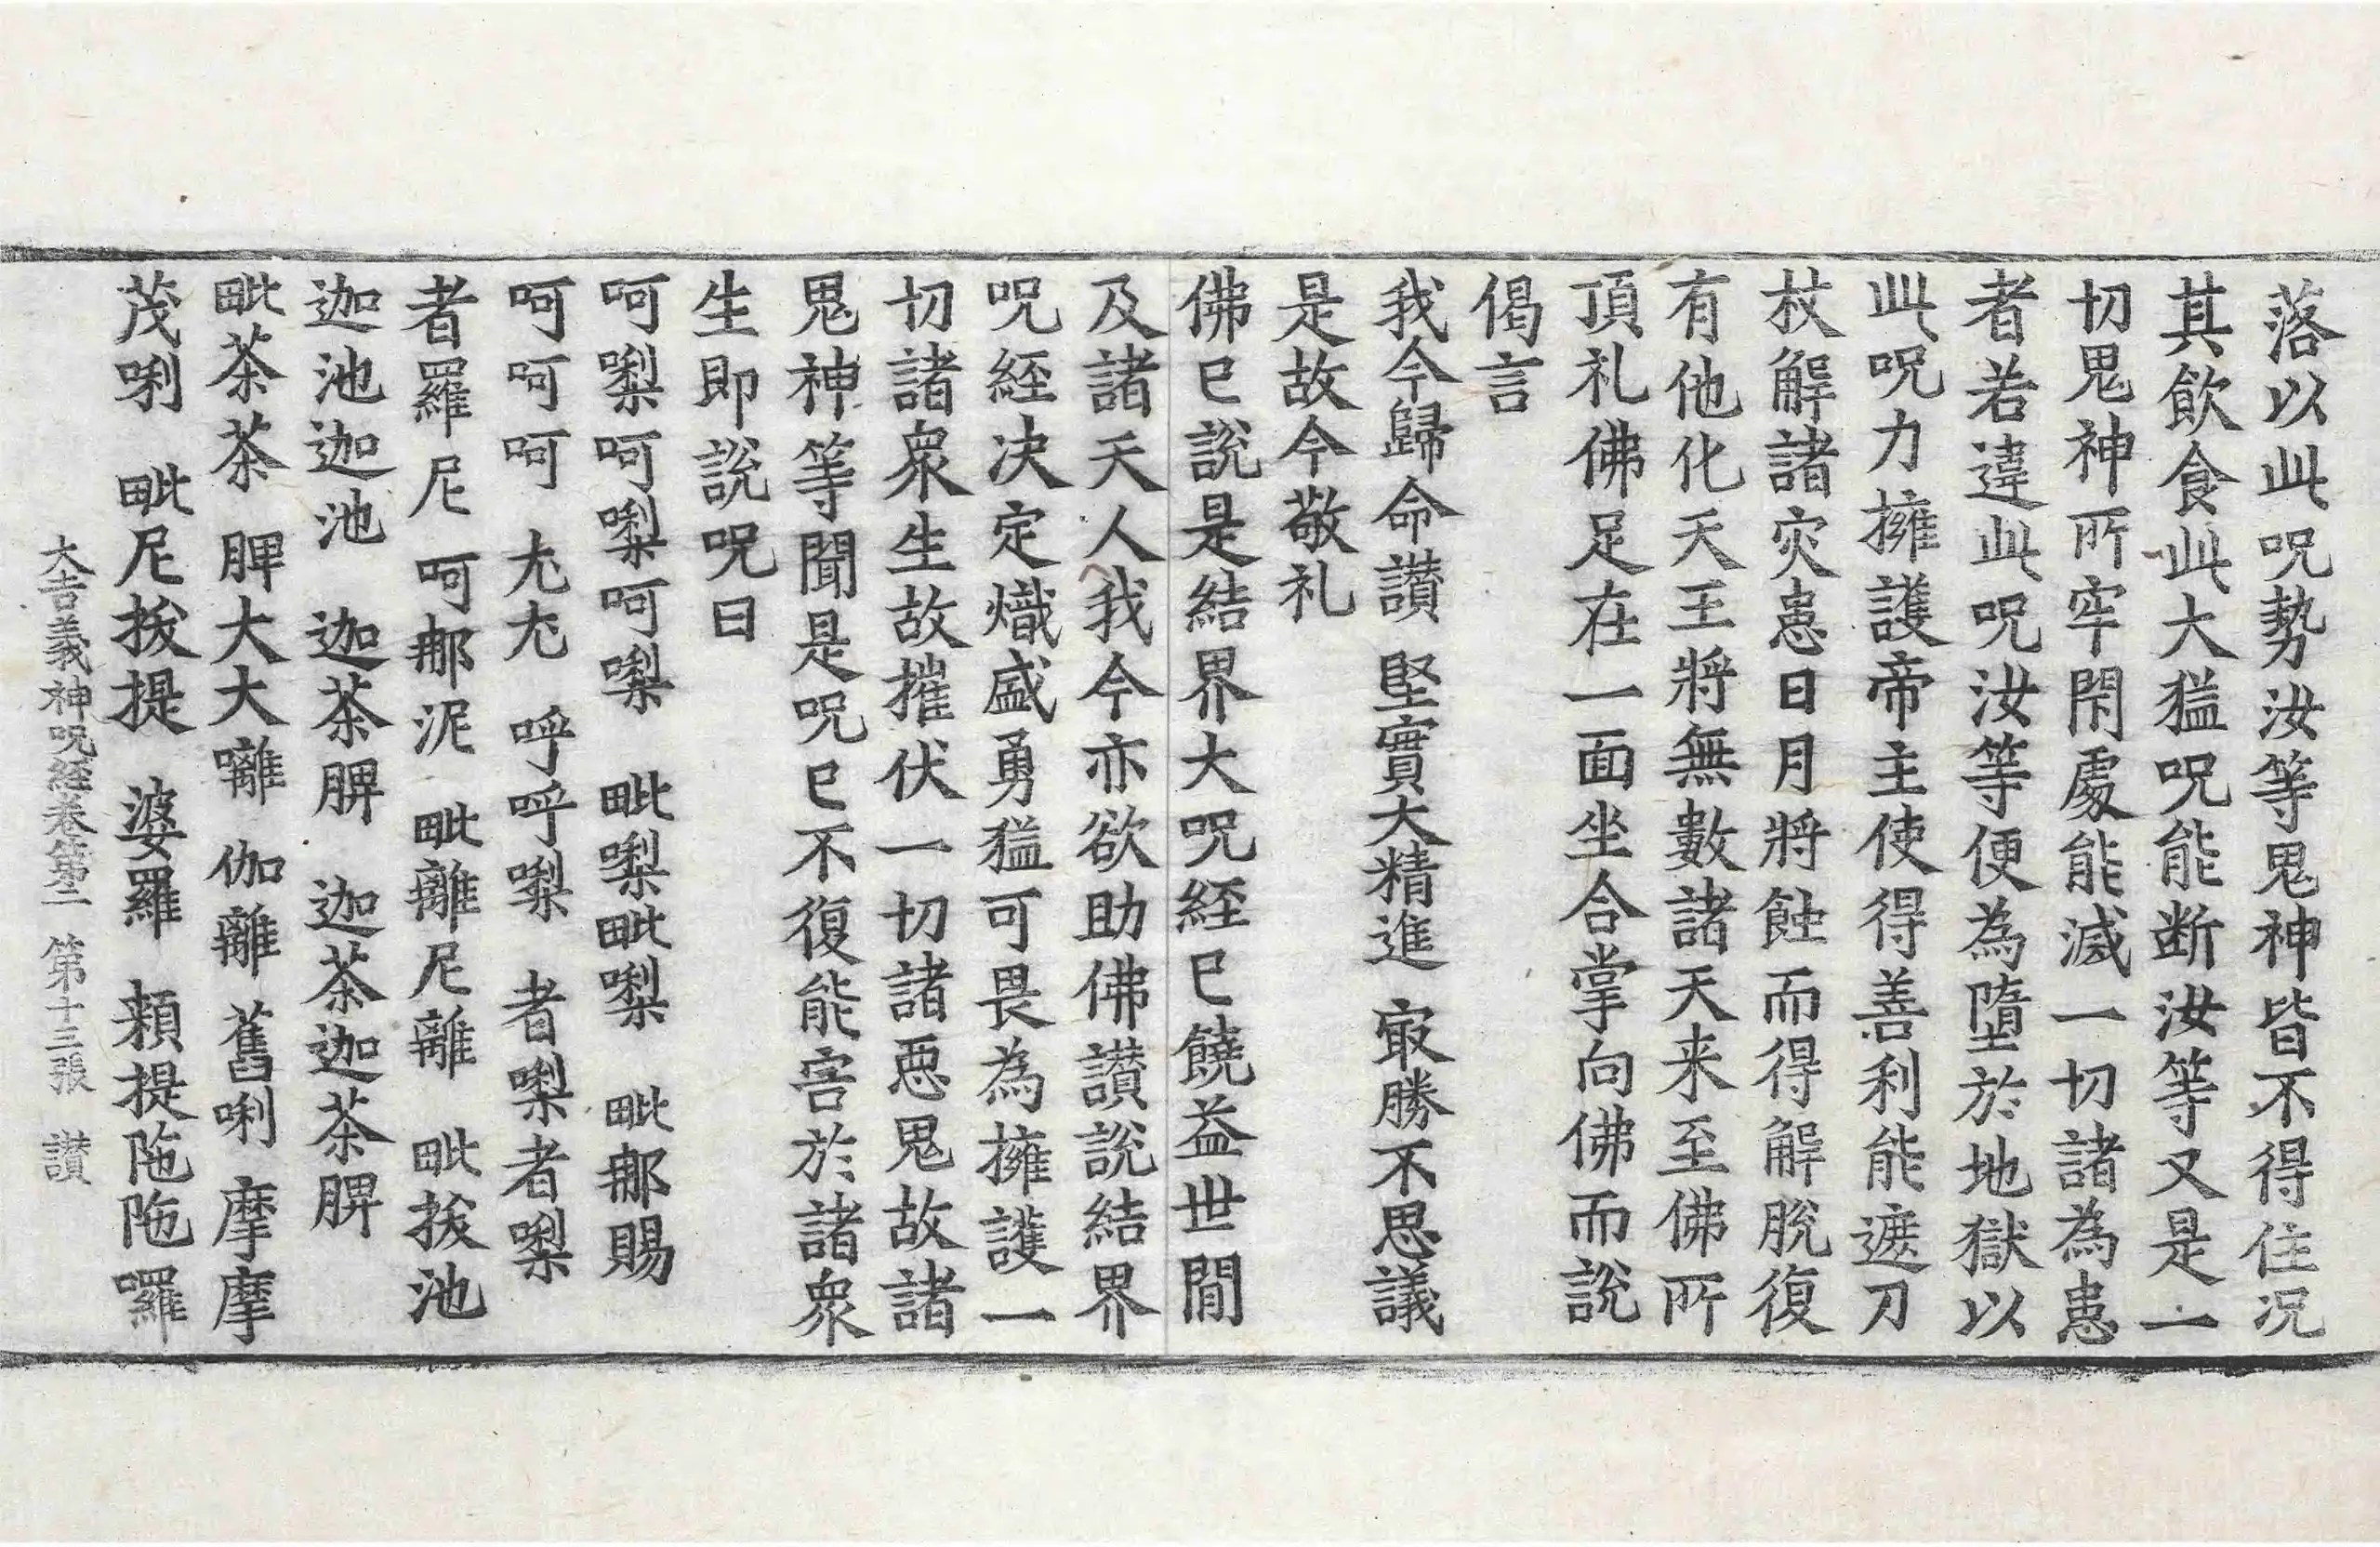 落以此呪勢汝等鬼神皆不得住况
其飲食此大猛呪能断汝等又是一
切鬼神所牢閇處能滅一切諸為患
者若違此呪汝等便為墮於地獄以
此呪力擁護帝主使得善利能遮刀
杖解諸灾患日月將蝕而得解脫復
有他化天王將無數諸天来至佛所
頂礼佛足在一面坐合掌向佛而說
偈言
我今歸命讃　堅實大精進　㝡勝不思議
是故今敬礼
佛已說是結界大呪経已饒益世間
及諸天人我今亦欲助佛讃說結界
呪経决定熾盛勇猛可畏為擁護一
切諸衆生故摧伏一切諸惡鬼故諸
鬼神等聞是呪已不復能害於諸衆
生即說呪曰
呵㘑呵㘑呵㘑　毗㘑毗㘑　毗那賜
呵呵呵　尢尢　呼呼㘑　者㘑者㘑
者羅尼　呵那泥　毗離尼離　毗拔池
迦池迦池　迦茶脾　迦茶迦茶脾
毗茶茶　脾大大囄　伽離　舊唎　摩摩
茂唎　毗尼拔提　婆羅　頼提陁陁囉
大吉義神呪経卷第二　第十三張　讃